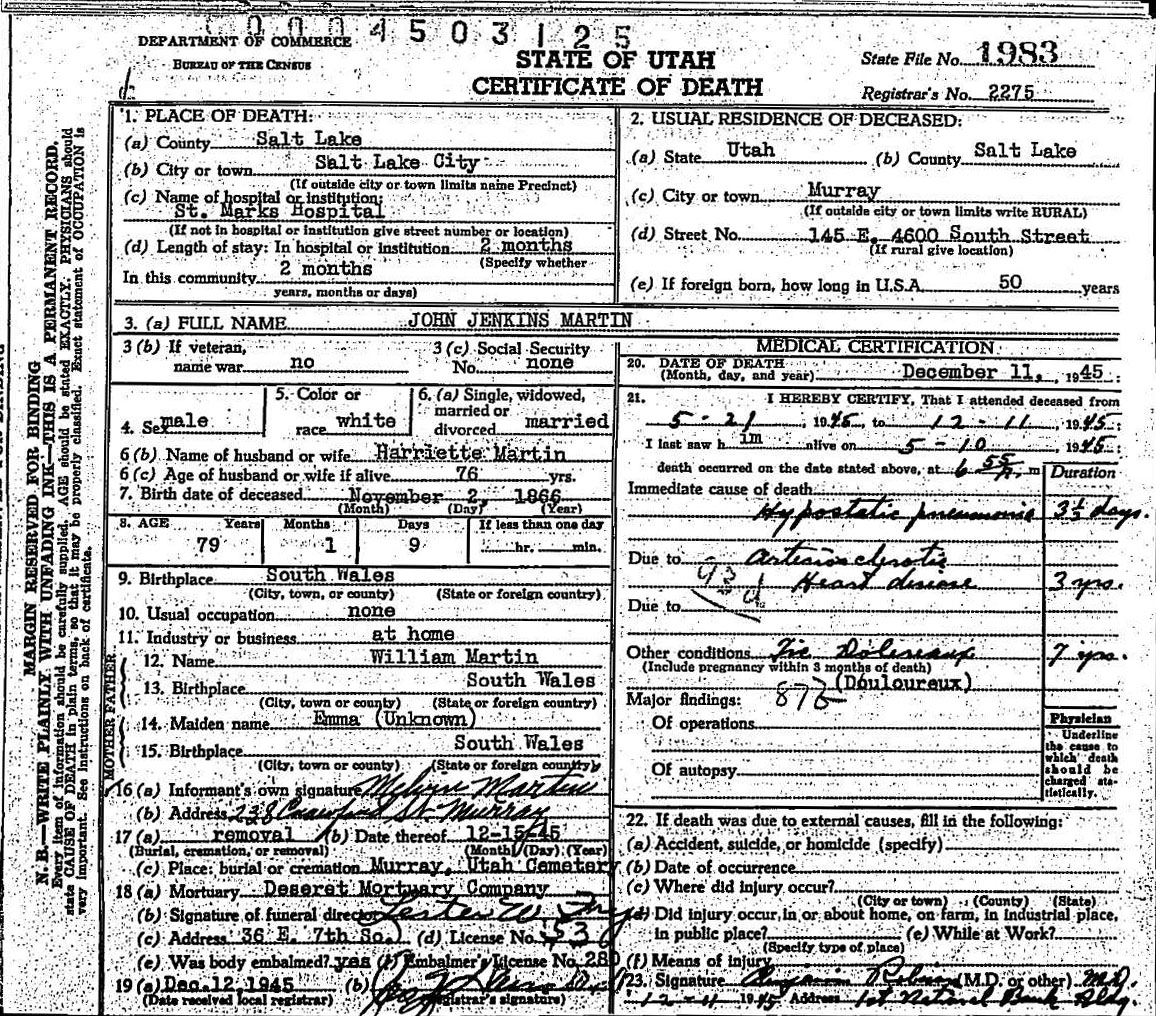 0004503125
DEPARTMENT OF COMMERCE
BUREAU OF THE CENSUS
STATE OF UTAH
CERTIFICATE OF DEATH
State File No. 1983
Registrar's No. 2275
MARGIN RESERVED FOR BINDING
N. B.—WRITE PLAINLY, WITH UNFADING INK—THIS IS A PERMANENT RECORD.
Every item of information should be carefully supplied. AGE should be stated EXACTLY. PHYSICIANS should
state CAUSE OF DEATH in plain terms, so that it may be properly classified. Exact statement of OCCUPATION is
very important. See instructions on back of certificate.
1. PLACE OF DEATH:
(a) County Salt Lake
(b) City or town Salt Lake City
(If outside city or town limits name Precinct)
(c) Name of hospital or institution:
St. Marks Hospital
(If not in hospital or institution give street number or location)
(d) Length of stay: In hospital or institution 2 months
(Specify whether
In this community 2 months
years, months or days)
2. USUAL RESIDENCE OF DECEASED:
(a) State Utah (b) County Salt Lake
(c) City or town Murray
(If outside city or town limits write RURAL)
(d) Street No. 145 E. 4600 South Street
(If rural give location)
(e) If foreign born, how long in U.S.A. 50 years
3. (a) FULL NAME JOHN JENKINS MARTIN
3 (b) If veteran, name war no
3 (c) Social Security No. none
4. Sex male
5. Color or race white
6. (a) Single, widowed, married or divorced married
6 (b) Name of husband or wife Harriette Martin
6 (c) Age of husband or wife if alive 76 yrs.
7. Birth date of deceased November 2, 1866
(Month) (Day) (Year)
8. AGE Years Months Days If less than one day
79 1 9 hr. min.
9. Birthplace South Wales
(City, town, or county) (State or foreign country)
10. Usual occupation none
11. Industry or business at home
FATHER
12. Name William Martin
13. Birthplace South Wales
(City, town or county) (State or foreign country)
MOTHER
14. Maiden name Emma (Unknown)
15. Birthplace South Wales
(City, town or county) (State or foreign country)
16 (a) Informant's own signature Melvin Martin
(b) Address 238 Crawford St Murray
17 (a) removal (b) Date thereof 12-15-45
(Burial, cremation, or removal) (Month) (Day) (Year)
(c) Place: burial or cremation Murray, Utah Cemetery
18 (a) Mortuary Deseret Mortuary Company
(b) Signature of funeral director Lester W.
(c) Address 36 E. 7th So. (d) License No. 536
(e) Was body embalmed? yes (f) Embalmer's License No. 280
19 (a) Dec. 12, 1945 (b)
(Date received local registrar) (Registrar's signature)
MEDICAL CERTIFICATION
20. DATE OF DEATH
(Month, day, and year) December 11, 1945
21. I HEREBY CERTIFY, That I attended deceased from
5-21, 1945, to 12-11, 1945.
I last saw him alive on 5-10 1945
death occurred on the date stated above, at 6 55 p. m
Duration
Immediate cause of death
Hypostatic pneumonia 3 1/2 days.
Due to arteriosclerotic
Heart disease 3 yrs.
93d
Due to
Other conditions Tic Dolereaux 7 yrs.
(Include pregnancy within 3 months of death)
(Douloureux)
Major findings: 87b
Of operations
Of autopsy
Physician
Underline
the cause to
which death
should be
charged sta-
tistically.
22. If death was due to external causes, fill in the following:
(a) Accident, suicide, or homicide (specify)
(b) Date of occurrence
(c) Where did injury occur?
(City or town) (County) (State)
(d) Did injury occur, in or about home, on farm, in industrial place,
in public place? (e) While at Work?
(Specify type of place)
(f) Means of injury
23. Signature (M.D. or other) M.D.
12-11 1945 Address 1st National Bank Bldg.